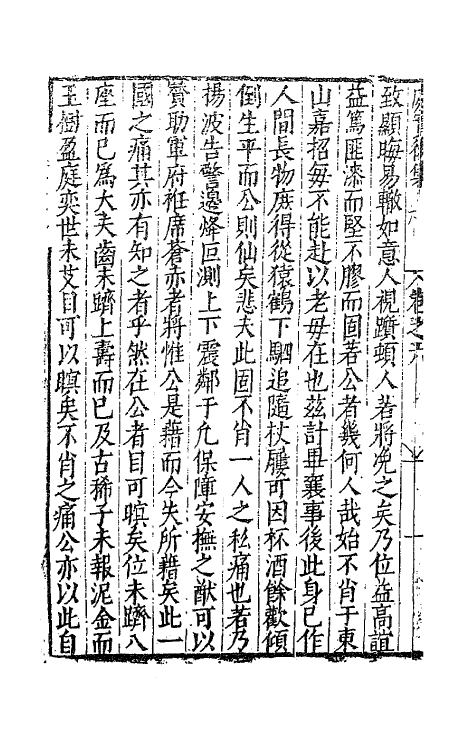 處實後集
卷之六
致顯晦易轍如意人視躓頓人若將凂之矣乃位益高誼
益篤匪漆而堅不膠而固若公者幾何人哉始不肖于東
山嘉招每不能赴以老母在也茲計畢襄事後此身已作
人間長物庶得從猿鶴下駟追隨杖屨可因杯酒餘歡傾
倒生平而公則仙矣悲夫此固不肖一人之私痛也若乃
揚波告警邊烽叵測上下震鄰于凢保障安撫之猷可以
贊助軍府袵席蒼赤者將惟公是藉而今失所藉矣此一
國之痛其亦有知之者乎然在公者目可瞑矣位未躋八
座而已為大夫齒未躋上壽而已及古稀子未報泥金而
玉樹盈庭奕世未艾目可以瞑矣不肖之痛公亦以此自